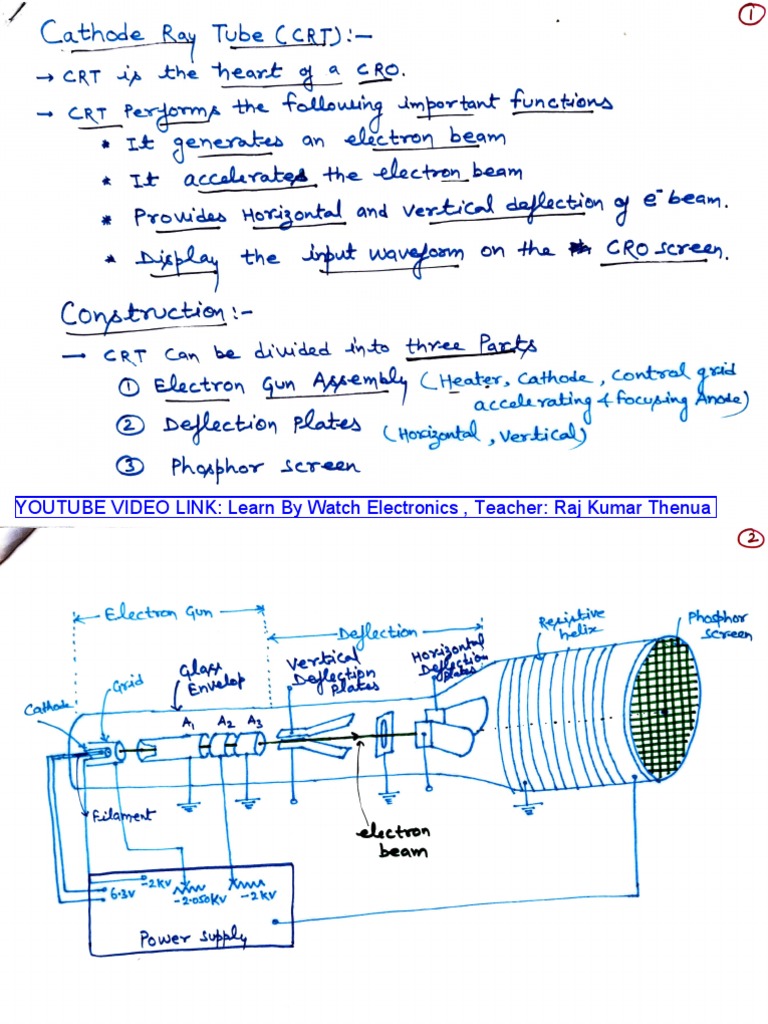 ①
Cathode Ray Tube (CRT):-
→ CRT is the heart of a CRO.
→ CRT Performs the following important functions
* It generates an electron beam
* It accelerates the electron beam
* Provides Horizontal and vertical deflection of e⁻ beam.
* Display the input waveform on the CRO screen.
Construction:-
→ CRT can be divided into three Parts
① Electron Gun Assembly (Heater, Cathode, control grid
accelerating & focusing Anode)
② Deflection plates (Horizontal, vertical)
③ Phosphor screen
YOUTUBE VIDEO LINK: Learn By Watch Electronics , Teacher: Raj Kumar Thenua
②
Electron Gun
Deflection
Resistive
helix
Phosphor
screen
Glass
Envelop
Vertical
Deflection
plates
Horizontal
Deflection
plates
Cathode
Grid
A1 A2 A3
Filament
electron
beam
6.3V
-2KV
-2.050KV
-2KV
Power supply